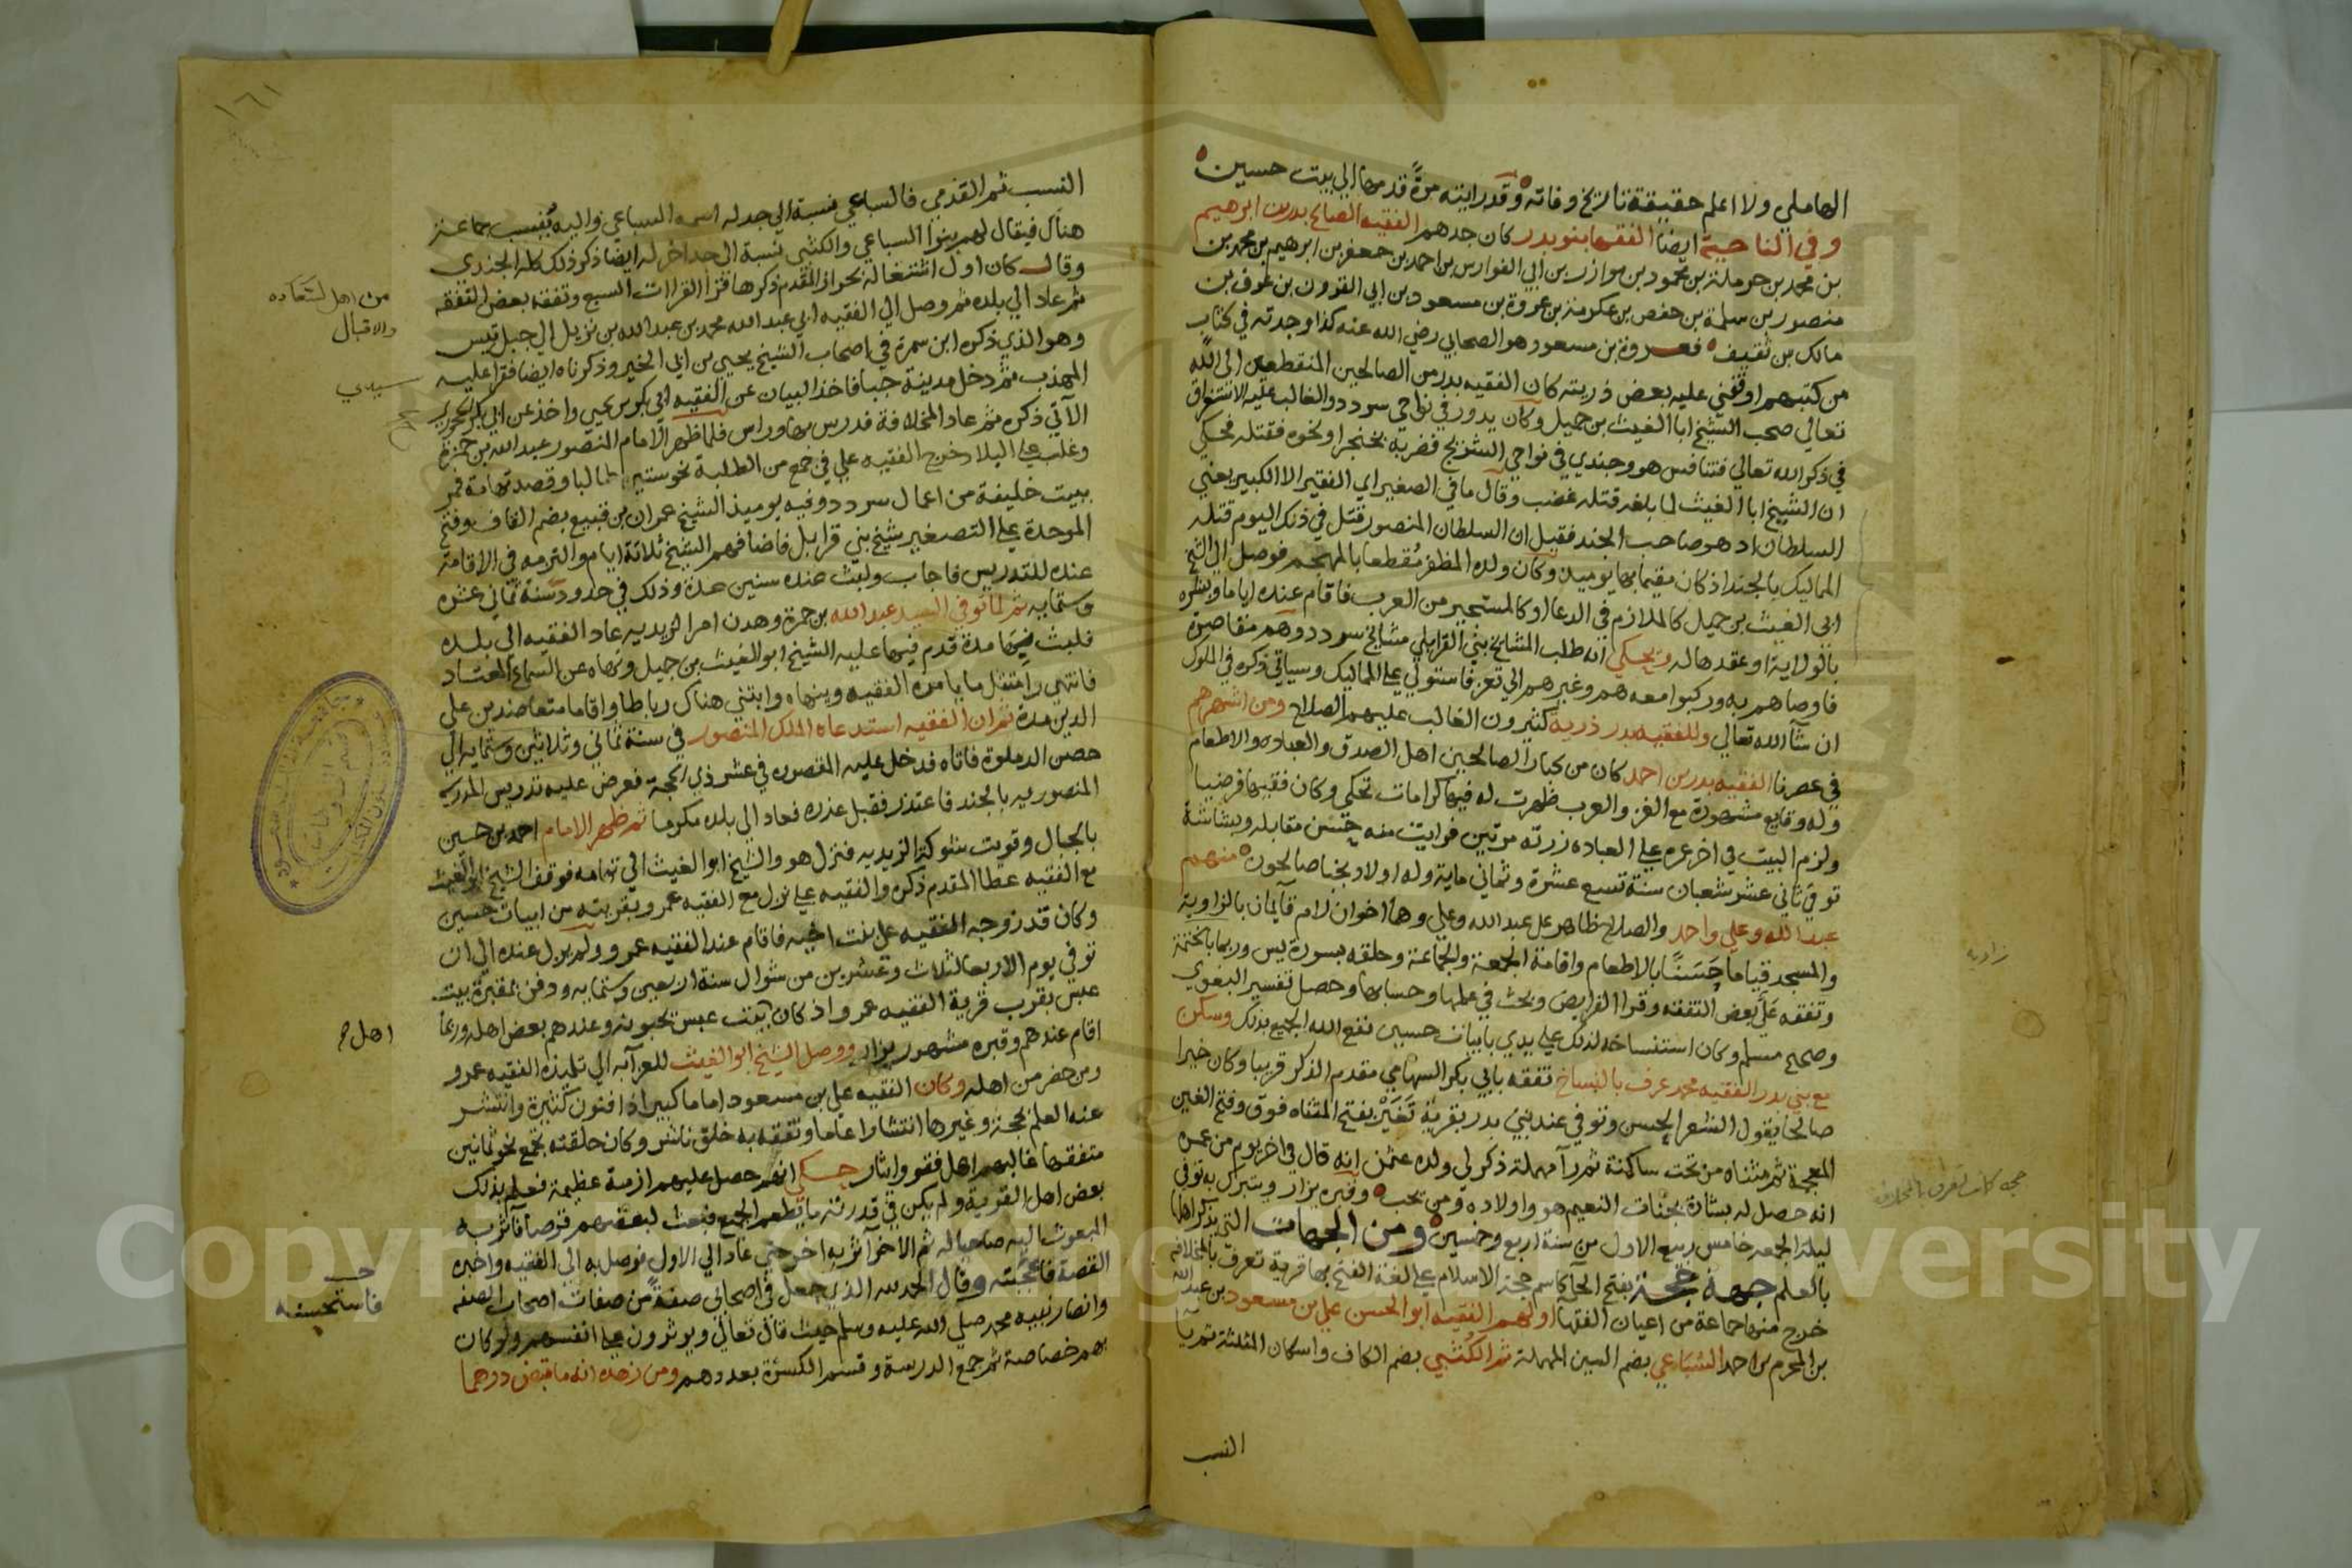 الهاملي ولا اعلم حقيقة تاريخ وفاته وقد رايته مرة قدمها الي بيت حسين
وفي الناحية ايضا الفقها بنو بدر كان جدهم الفقيه الصالح بدر بن ابرهيم
بن محمد بن حرملة بن محمود بن موازر بن ابي الفوارس بن احمد بن جعفر بن ابرهيم بن محمد بن
منصور بن سلمة بن حفص بن عكرمة بن عروة بن مسعود بن ابي القرون بن عوف بن
مالك بن ثقيف فعروة بن مسعود هو الصحابي رضي الله عنه كذا وجدته في كتاب
من كتبهم اوقفني عليه بعض ذريته كان الفقيه بدر من الصالحين المنقطعين الى الله
تعالى صحب الشيخ ابا الغيث بن جميل وكان يدور في نواحي سردد والغالب عليه الاستغراق
في ذكر الله تعالى فتنافس هو وجندي في نواحي فضربه بخنجر او نحوه فقتله فحكي
ان الشيخ ابا الغيث لما بلغه قتله غضب وقال ما في الصغير اي الفقير الا الكبير يعني
السلطان اذ هو صاحب الجند فقيل ان السلطان المنصور قتل في ذلك اليوم قتله
المماليك بالجند اذ كان مقيما بها يوميذ وكان ولده المظفر مقطعا بالمهجم فوصل الى الشيخ
ابي الغيث بن جميل كالملازم في الدعا او كالمستجير من العرب فاقام عنده اياما وبشره
بالولاية او عقدها له ويحكي انه طلب المشايخ بني القرابلي مشايخ سردد وهم مقاصرة
فاوصاهم به وركبوا معه هم وغيرهم الي تعز فاستولي على المماليك وسياتي ذكره في الملوك
ان شآ الله تعالي وللفقيه بدر ذرية كثيرون الغالب عليهم الصلاح ومن اشهرهم
في عصرنا الفقيه بدر بن احمد كان من كبار الصالحين اهل الصدق والعباده والاطعام
وله وقايع مشهورة مع الغز والعرب ظهرت له فيها كرامات تحكي وكان فقيها فرضيا
ولزم البيت في اخر عمره على العباده زرته مرتين فرايت منه حسن مقابله وبشاشة
توفي ثاني عشر شعبان سنة تسع عشرة وثماني ماية وله اولاد نجبا صالحون منهم
عبد الله وعلي واحمد والصلاح ظاهر على عبد الله وعلي وهما اخوان لام قآيمان بالزاوية
والمسجد قياما حسنا بالاطعام واقامة الجمعة والجماعة وحلقه بسورة يس وربما بالختمة
وتفقه علي بعض التفقه وقرا الفرايض وبحث في عملها وحسابها وحصل تفسير البغوي
وصحيح مسلم وكان استنساخه لذلك على يدي بابيات حسين نفع الله الجميع بذلك وسكن
مع بني بدر الفقيه محمد عرف بالنساخ تفقه بابي بكر السهامي مقدم الذكر قريبا وكان خيرا
صالحا يقول الشعر الحسن وتوفي عند بني بدر بقرية تغير بفتح المثناه فوق وفتح الغين
المعجمة ثم مثناه من تحت ساكنة ثم رآ مهملة ذكر لي ولده عثمن انه قال في اخر يوم من عمره
انه حصل له بشارة بجنات النعيم هو واولاده ومن يحب وقبره يزار ويتبرك به توفي
ليلة الجمعه خامس ربيع الاول من سنة اربع وخمسين ومن الجهات التي يذكر اهلها
بالعلم جهة حجة بفتح الحآ كاسم حجة الاسلام على لغة الفتح بها قرية تعرف بالمخلافه
خرج منها جماعة من اعيان الفقها اولهم الفقيه ابو الحسن علي بن مسعود بن عبد الله
بن المحرم بن احمد السباعي بضم السين المهملة ثم الكثبي بضم الكاف واسكان المثلثة ثم يآ
النسب
زاويه
١٦١
النسب ثم القدمي فالسباعي نسبة الي جد له اسمه السباعي واليه ينسب جماعة
هناك فيقال لهم بنوا السباعي والكثبي نسبة الى جد اخر له ايضا ذكر ذلك كله الجندي
وقال كان اول اشتغاله بحراز المقدم ذكرها فقرا القراات السبع وتفقه بعض التفقه
ثم عاد الي بلده ثم وصل الي الفقيه ابي عبد الله محمد بن عبد الله بن نزيل الي جبل تيس
وهو الذي ذكره ابن سمرة في اصحاب الشيخ يحيي بن ابي الخير وذكرناه ايضا فقرا عليه
المهذب ثم دخل مدينة جبا فاخذ البيان عن الفقيه ابي بكر بن يحيي واخذ عن ابي بكر
الآتي ذكره ثم عاد المخلافة فدرس بها وراس فلما ظهر الامام المنصور عبد الله بن حمزة
وغلب على البلاد خرج الفقيه علي في جمع من الطلبة نحو ستين طالبا وقصد تهامة فمر
ببيت خليفة من اعمال سردد وفيه يوميذ الشيخ عمران بن قبيع بضم القاف وفتح
الموحدة على التصغير شيخ بني قرابل فاضافهم الشيخ ثلاثة ايام والتزمه في الاقامة
عنده للتدريس فاجاب ولبث عنده سنين عدة وذلك في حدود سنة ثماني عشره
وستمايه ثم لما توفي السيد عبد الله بن حمزة وهدن امر الزيديه عاد الفقيه الي بلده
فلبث فيها مدة قدم فيها عليه الشيخ ابو الغيث بن جميل ونهاه عن السماع المعتاد
فانتهي وامتثل ما يامره الفقيه وينهاه وابتني هناك رباطا واقاما متعاضدين على
الدين مدة ثم ان الفقيه استدعاه الملك المنصور في سنة ثماني وثلاثين وستمايه الي
حصن الدملوة فاتاه فدخل عليه المقصوره في عشر ذي الحجة فعرض عليه تدريس المدرسه
المنصوريه بالجند فاعتذر فقبل عذره فعاد الي بلده مكرما ثم ظهر الامام احمد بن حسين
بالجبال وقويت شوكة الزيديه فنزل هو والشيخ ابو الغيث الي تهامه فوقف الشيخ ابو الغيث
مع الفقيه عطا المقدم ذكره والفقيه علي نزل مع الفقيه عمرو بقريته من ابيات حسين
وكان قد زوجه الفقيه علي بنت اخيه فاقام عند الفقيه عمرو ولم يزل عنده الي ان
توفي يوم الاربعا لثلاث وعشرين من شوال سنة اربعين وستمايه ودفن بمقبرة بيت
عبس بقرب قرية الفقيه عمرو اذ كان بيت عبس يحبونه وعندهم بعض اهله وربما
اقام عندهم وقبره مشهور يزار ووصل الشيخ ابو الغيث للعزآبه الي تلميذه الفقيه عمرو
ومن حضر من اهله وكان الفقيه علي بن مسعود اماما كبيرا ذا فنون كثيرة وانتشر
عنه العلم بحجة وغيرها انتشارا عاما وتفقه به خلق ناشر وكان حلقته تجمع نحو ثمانين
متفقها غالبهم اهل فقر وايثار حكي انهم حصل عليهم ازمة عظيمة فعلم بذلك
بعض اهل القرية ولم يكن في قدرته ما يطعم الجميع فبعث لبعضهم قرصا فآثر به
المبعوث اليه صاحبا له ثم الاخر آثر به اخر حتي عاد الي الاول فوصل به الى الفقيه واخبره
القصة فاعجبته وقال الحمد لله الذي جعل في اصحابي صفة من صفات اصحاب الصفه
وانصار نبيه محمد صلي الله عليه وسلم حيث قال تعالي ويوثرون على انفسهم ولو كان
بهم خصاصة ثم جمع الدرسة وقسم الكسرة بعددهم ومن زهده انه ما قبض درهما
والاقبال
سيدي
فاستحسنه
Copyright © King Saud University